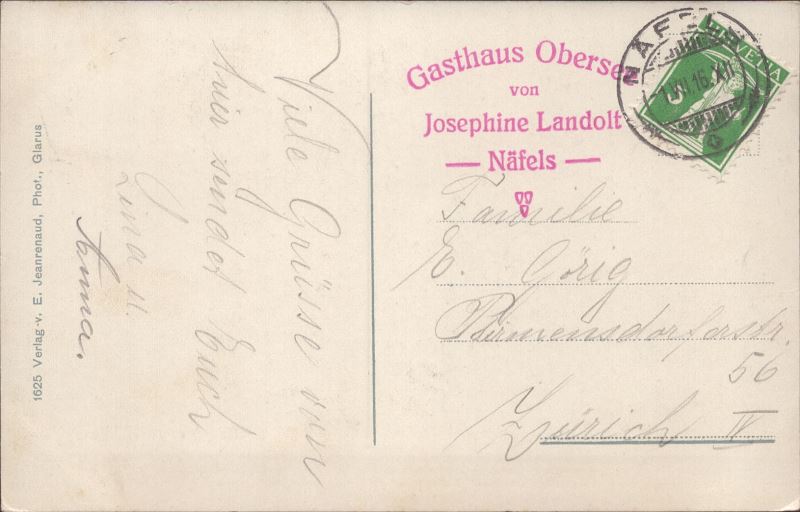 Viele Grüsse von
hier sendet Euch
Lina u.
Anna.
1625 Verlag v. E. Jeanrenaud, Phot., Glarus
Gasthaus Obersee
von
Josephine Landolt
— Näfels —
NÄFELS
1.VII.16.XII
HELVETIA
5
Familie
E. Görig
Birmensdorferstr.
56
Zürich IV.